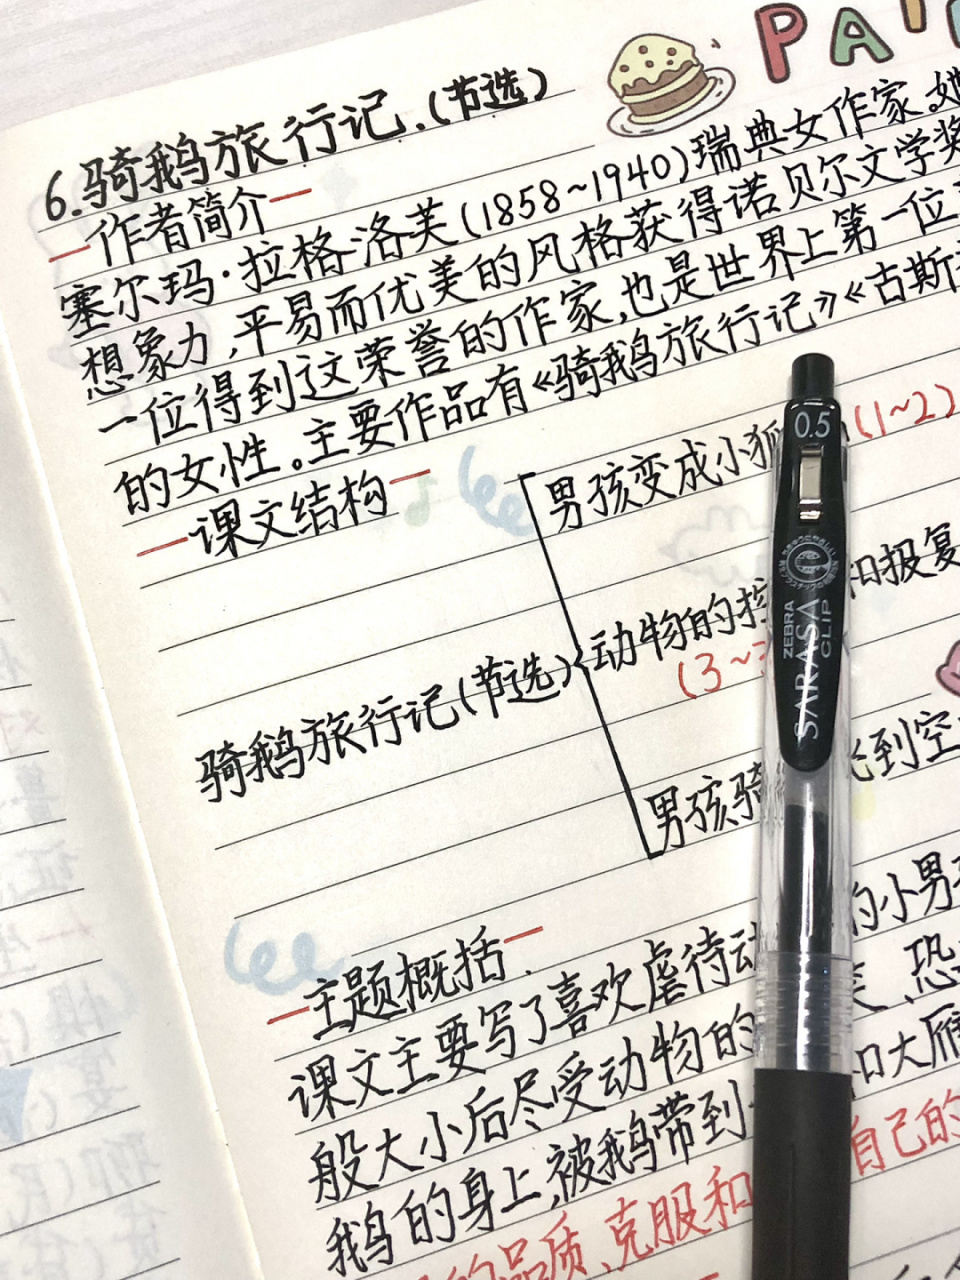 PAI
6.骑鹅旅行记.(节选)
作者简介
塞尔玛·拉格洛芙(1858~1940)瑞典女作家。她
想象力,平易而优美的风格获得诺贝尔文学奖
一位得到这荣誉的作家,也是世界上第一位
的女性。主要作品有《骑鹅旅行记》《古斯
课文结构
男孩变成小狐 (1~2)
动物的 和报复
(3~
骑鹅旅行记(节选)
男孩骑 到空
主题概括.
课文主要写了喜欢虐待动 的小男
般大小后尽受动物的 恐
鹅的身上,被鹅带到 和大雁
的品质,克服和 自己的
0.5
ZEBRA
SARASA
CLIP